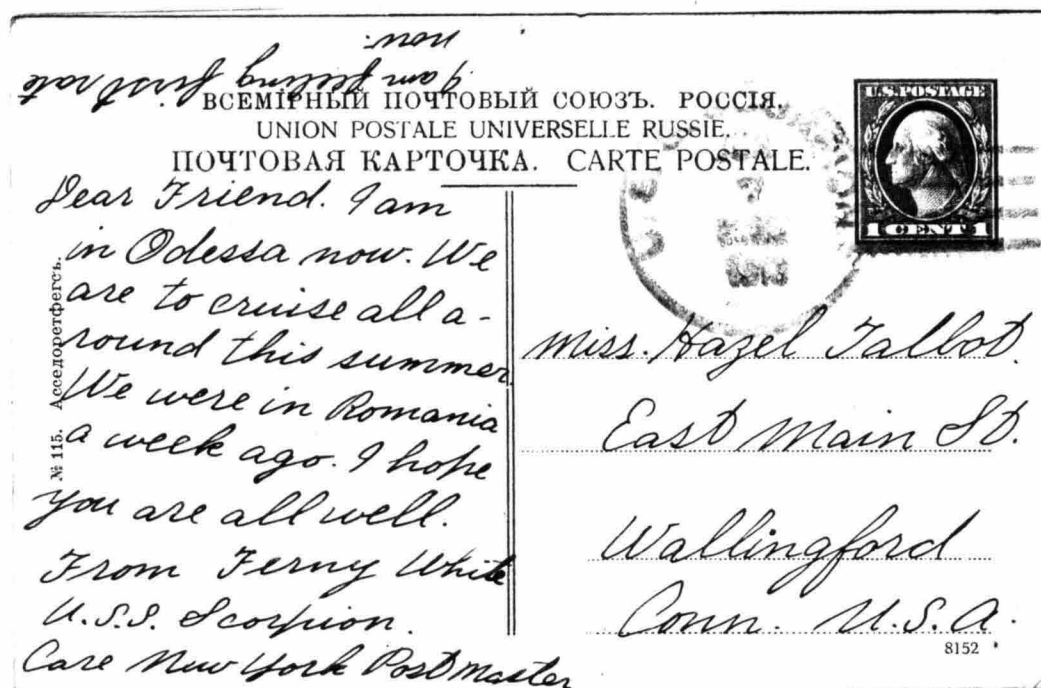 I am feeling first rate
now.
ВСЕМІРНЫЙ ПОЧТОВЫЙ СОЮЗЪ. РОССІЯ.
UNION POSTALE UNIVERSELLE RUSSIE.
ПОЧТОВАЯ КАРТОЧКА. CARTE POSTALE.
U.S. POSTAGE
1 CENT 1
Dear Friend. I am
in Odessa now. We
are to cruise all a-
round this summer.
We were in Romania
a week ago. I hope
you are all well.
From Ferny White
U.S.S. Scorpion.
Care New York Postmaster
№ 115. Асседоретфегсъ.
Miss. Hazel Talbot.
East Main St.
Wallingford
Conn. U.S.A.
8152